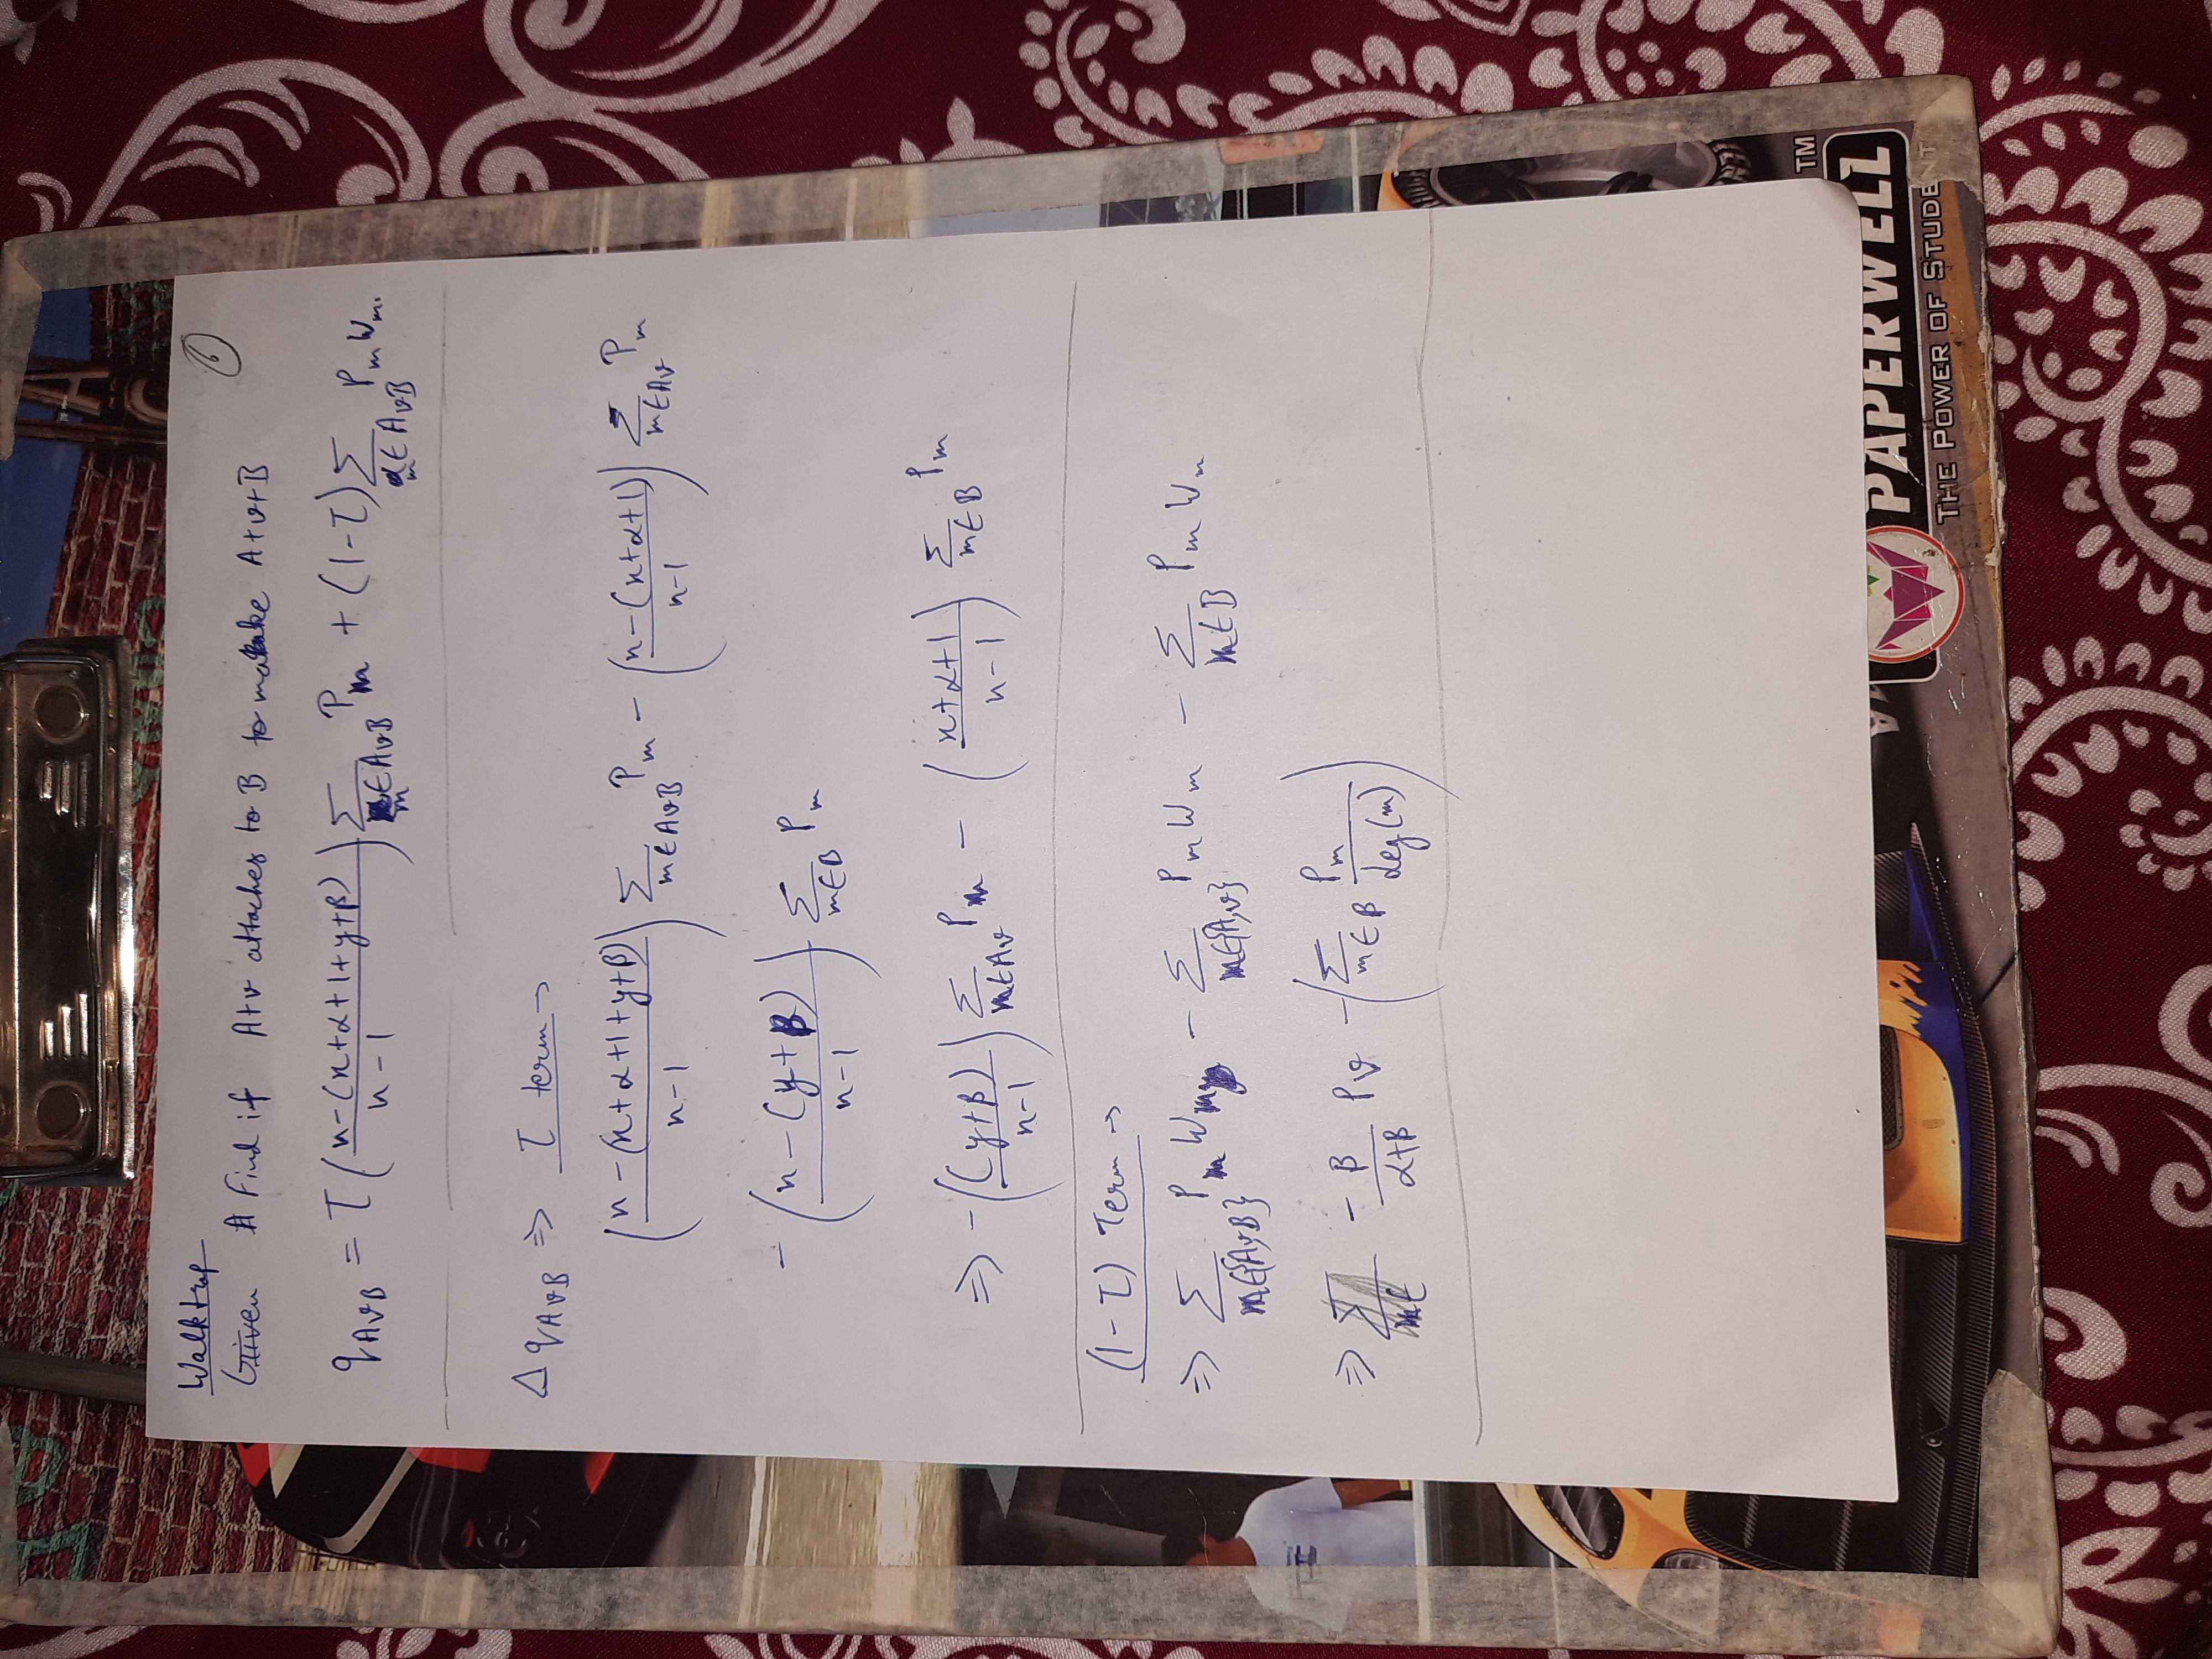 6
Walktrap
Given # Find if A+v attaches to B to make A+v+B
q_{AvB} = τ ( (n-(x+α+1+y+β)) / (n-1) ) Σ_{m∈AvB} P_m + (1-τ) Σ_{m∈AvB} P_m W_m.
Δ q_{AvB} ⇒ τ term →
( (n-(x+α+1+y+β)) / (n-1) ) Σ_{m∈AvB} P_m - ( (n-(x+α+1)) / (n-1) ) Σ_{m∈Av} P_m
- ( (n-(y+β)) / (n-1) ) Σ_{m∈B} P_m
⇒ - ( (y+β) / (n-1) ) Σ_{m∈Av} P_m - ( (x+α+1) / (n-1) ) Σ_{m∈B} P_m
(1-τ) Term →
⇒ Σ_{m∈{A,v,B}} P_m W_m - Σ_{m∈{A,v}} P_m W_m - Σ_{m∈B} P_m W_m
⇒ - β / (α+β) P_v - ( Σ_{m∈B} P_m / deg(m) )
TM
PAPERWELL
THE POWER OF STUDENT